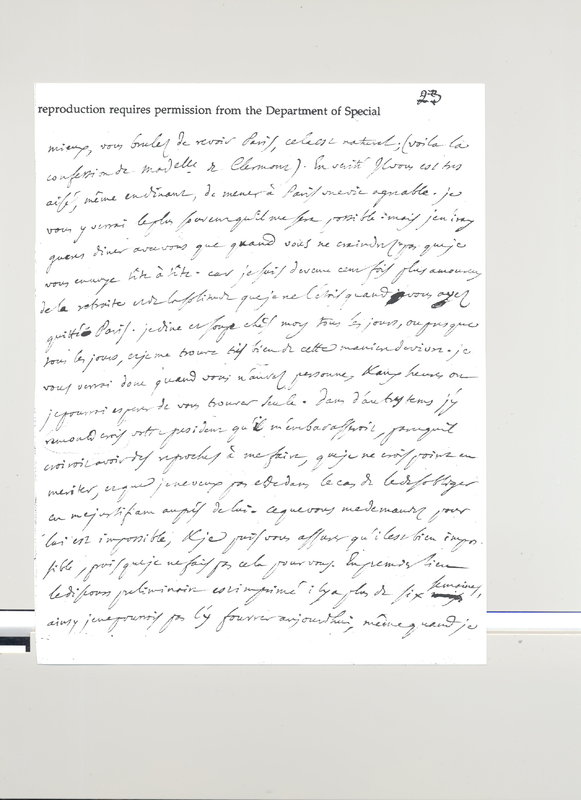 23
reproduction requires permission from the Department of Special
mieux, vous brulez de revoir Paris, cela est naturel; (voila la
confession de Madelle de Clermont). En verité Il vous est tres
aisé, même en dinant, de mener à Paris une vie agreable. je
vous y verrai le plus souvent qu'il me sera possible mais je n'iray
guere diner avec vous que quand vous ne craindrez pas que je
vous ennuye tête à tête. car je suis devenu cent fois plus amoureux
de la retraite et de la solitude que je ne l'étois quand vous avez
quitté Paris. je dine et soupe chés moy tous les jours, ou presque
tous les jours, et je me trouve très bien de cette maniere de vivre. je
vous verrai donc quand vous n'aurez personne, & aux heures ou
je pourrai esperer de vous trouver seule. Dans d'autres tems j'y
rencontrerois votre president qui m'embarasseroit, parcequ'il
croiroit avoir des reproches à me faire, que je ne crois point en
meriter, et que je ne veux pas etre dans le cas de le desobliger
en me justifiant auprès de lui. Ce que vous me demandez pour
lui est impossible, & je puis vous assurer qu'il est bien impos-
sible, puisque je ne fais pas cela pour vous. En premier lieu
le discours preliminaire est imprimé il y a plus de six semaines,
ainsy je ne pourrois pas l'y fourrer aujourdhui, même quand je